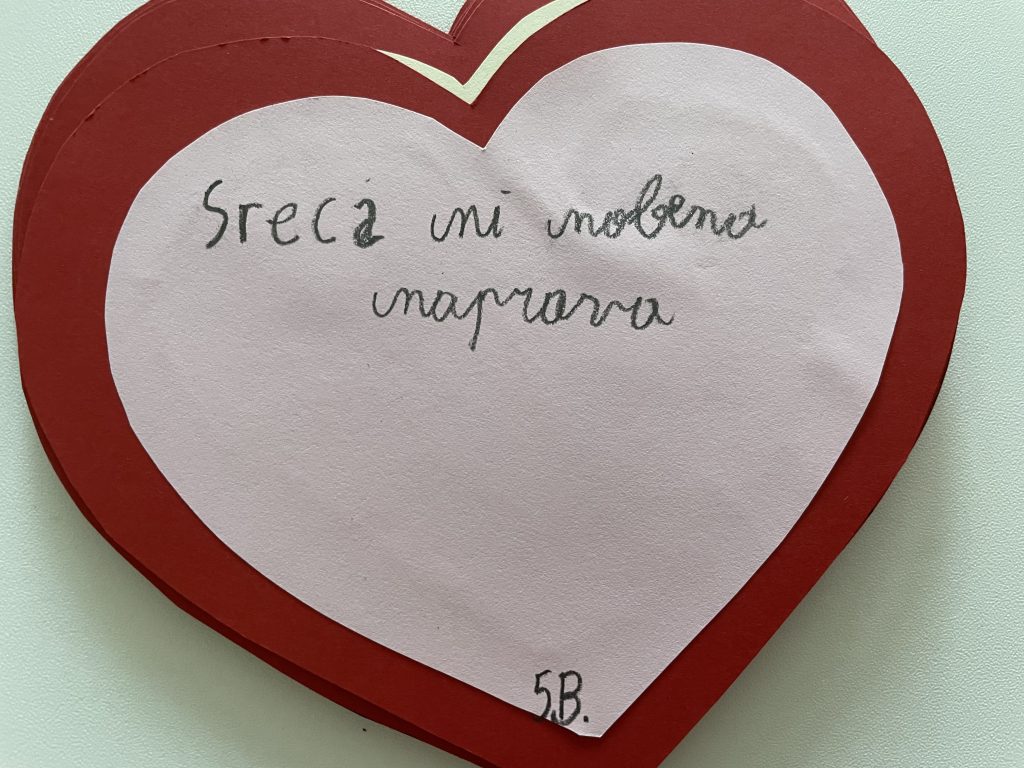 Sreča ni nobena
naprava
5.B.